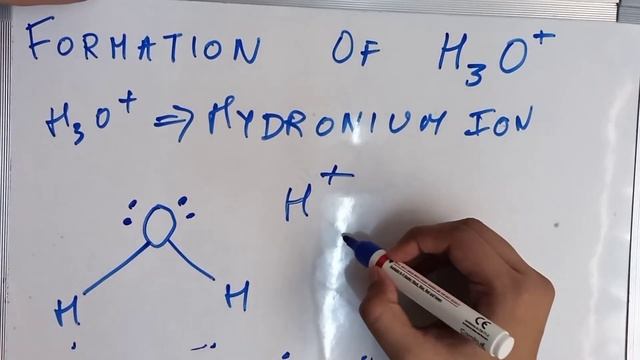 FORMATION OF H₃O⁺
H₃O⁺ ⇒ HYDRONIUM ION
H⁺
:O:
H H
CE